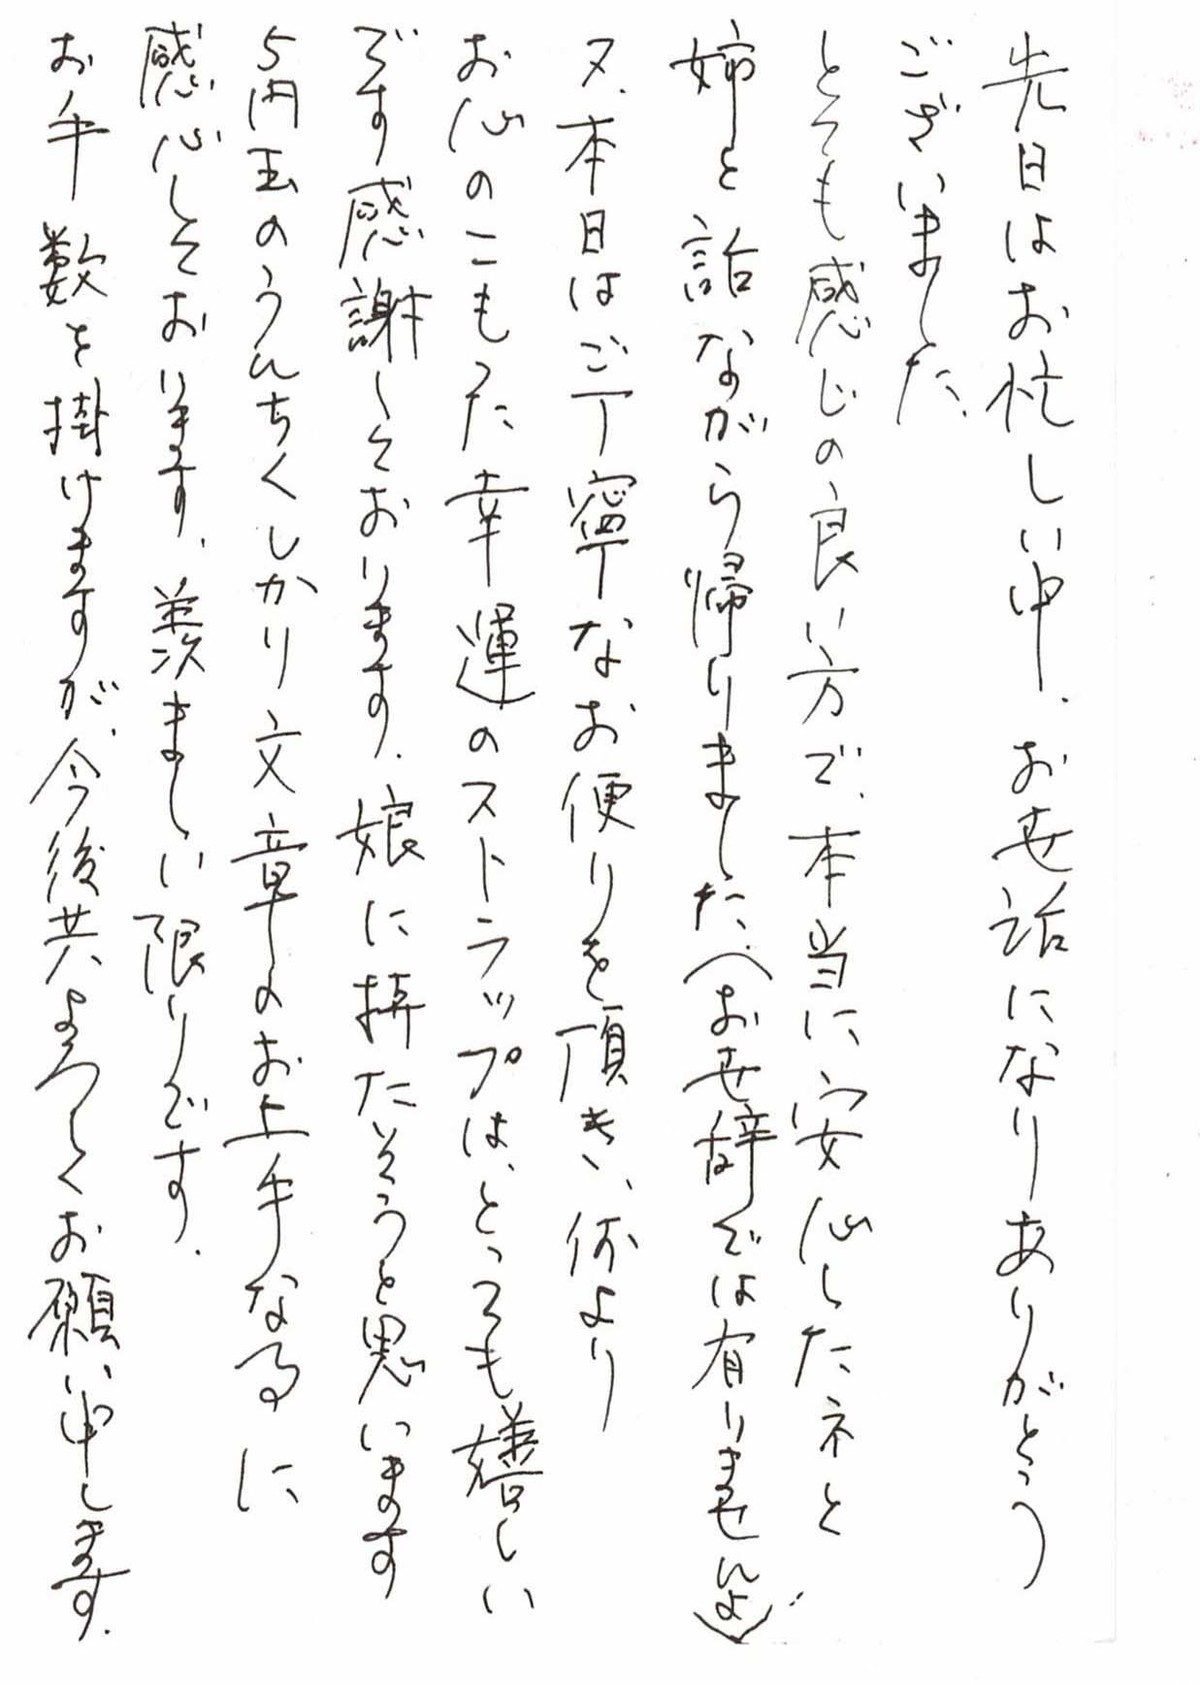 先日はお忙しい中、お世話になりありがとう
ございました。
とても感じの良い方で、本当に安心したネと
姉と話ながら帰りました。(お世辞では有りませんよ)
又、本日はご丁寧なお便りを頂き、何より
お心のこもった幸運のストラップは、とっても嬉しい
です感謝しております。娘に持たそうと思います
5円玉のうんちくしかり文章のお上手なる事に
感心しております。羨ましい限りです。
お手数を掛けますが、今後共よろしくお願い申します。